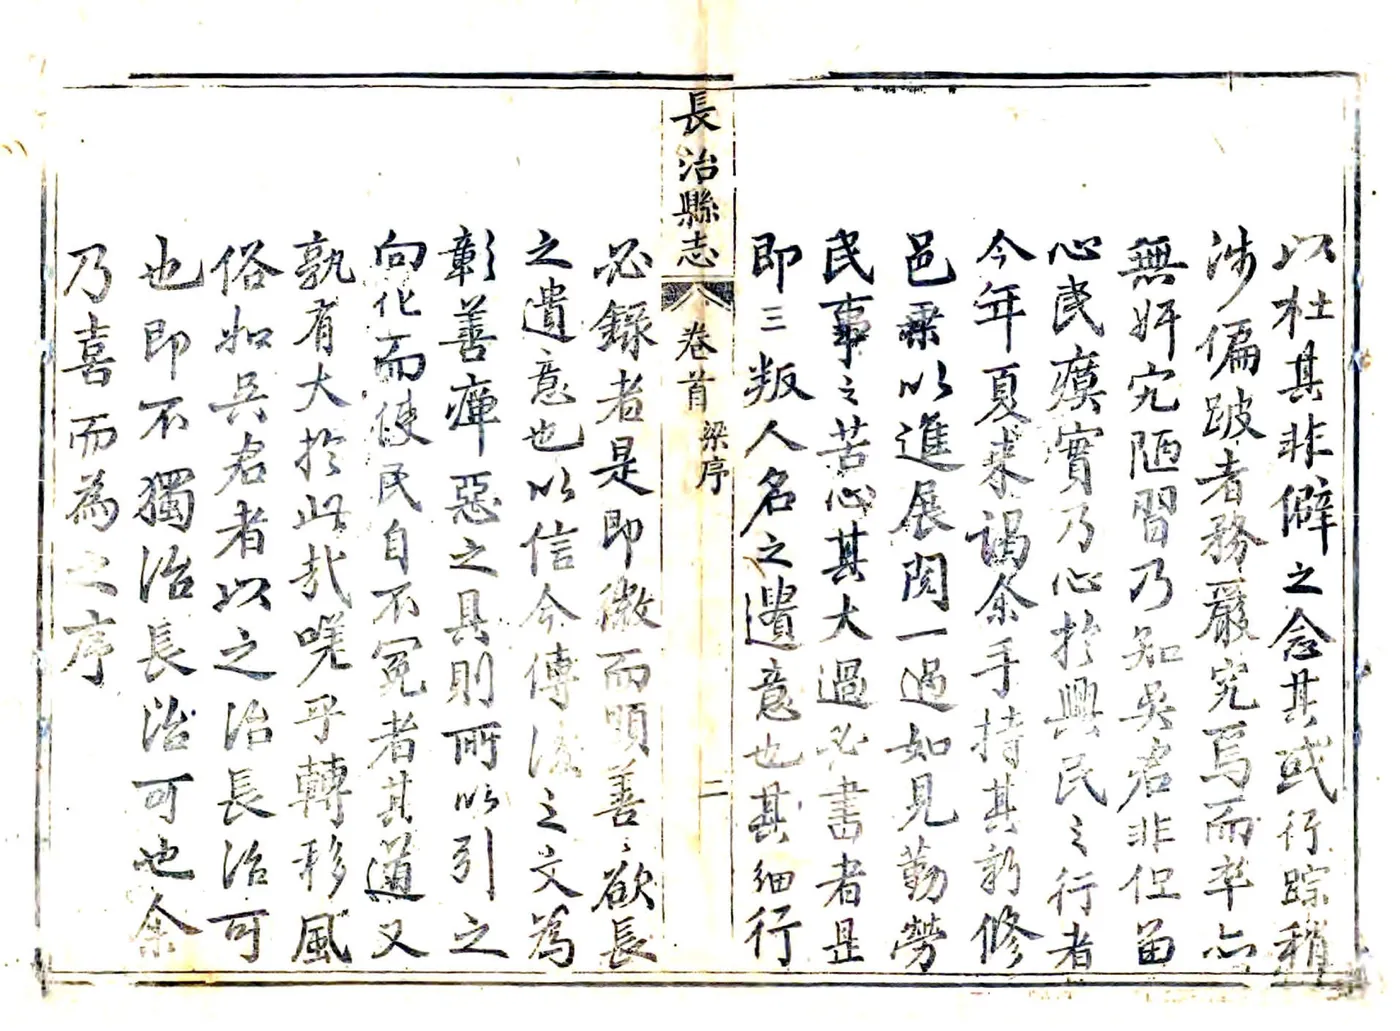 以杜其非僻之念其或行踪稍
涉偏跛者務嚴究焉而卒亦
無奸宄陋習乃知吳君非但留
心民瘼實乃心於興民之行者
今年夏來謁余手持其新修
邑乘以進展閱一過如見勤勞
民事之苦心其大過必書者是
即三叛人名之遺意也其細行
長治縣志
卷首
梁序
二
必録者是即微而顯善善欲長
之遺意也以信今傳後之文為
彰善癉惡之具則所以引之
向化而使民自不冤者其道又
孰有大於此哉嗟乎轉移風
俗如吳君者以之治長治可
也即不獨治長治可也余
乃喜而為之序